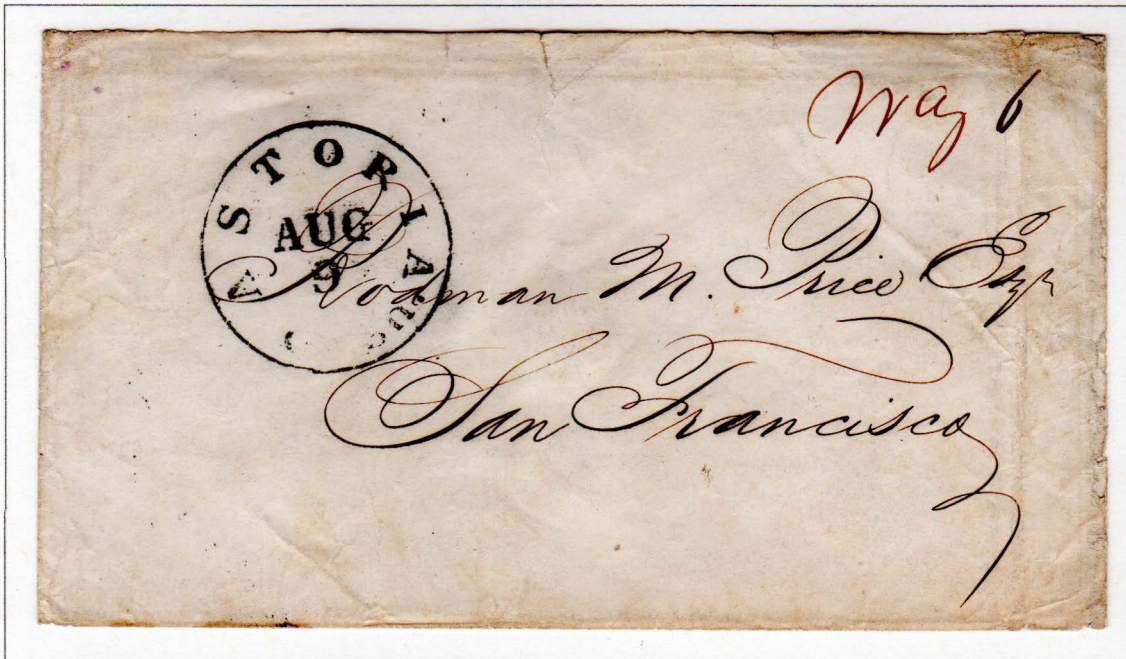 Way 6
ASTORIA
AUG
9
Rodman M. Price Esqr
San Francisco